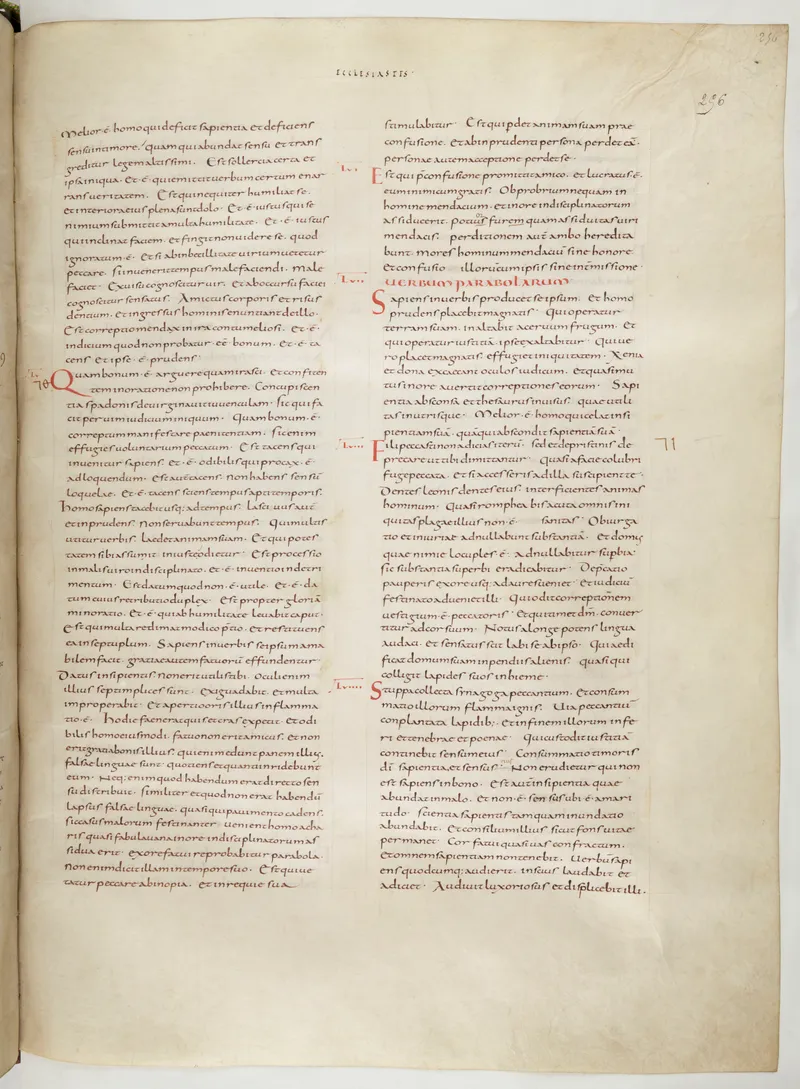 ECCLESIASTIS
256
256
Melior · ē · homo qui deficit sapientia et deficiens
sensu in amore . quam qui abundat sensu et trans
greditur legem altissimi . Est sollercia certa et
ipsa iniqua . Et · ē · qui emittit uerbum certum enar
rans ueritatem . Est qui nequiter humiliat se .
et interiora eius plena sunt dolo . Et · ē · iustus qui se
nimium submittit a multa humilitate . Et · ē · iustus
qui inclinat faciem . et fingit non uidere se . quod
ignoratum · ē · Et si ab inbecillitate uirium uetetur
peccare . si inuenerit tempus male faciendi . male
faciet · Ex uisu cognoscitur uir . et ab occursu faciei
cognoscitur sensatus . Amictus corporis et risus
dentium . et ingressus hominis enuntiant de illo .
Est correptio mendax in ira contumeliosi . Et · ē ·
iudicium quod non probatur · eē · bonum . Et · ē · ta
cens et ipse · ē · prudens ·
L.
70
Quam bonum · ē · arguere quam irasci . et confiten
tem in oratione non prohibere . Concupiscen
tia spadonis deuirginauit iuuenculam . sic qui fa
cit per uim iudicium iniquum . Quam bonum · ē ·
correptum manifestare paenitentiam . sic enim
effugies uoluntarium peccatum . Est tacens qui
inuenitur sapiens . et · ē · odibilis qui procax · ē ·
ad loquendum . Est aut tacens . non habens sensū
loquelae . et · ē · tacens sciens tempus apti temporis .
Homo sapiens tacebit usq; ad tempus . lasciuus aut
et inprudens . non seruabunt tempus . Qui multis
utitur uerbis . laedet animam suam . Et qui potes
tatem sibi assumit . iniuste odietur · Est processio
in malis uiro indisciplinato . et · ē · inuentio in detri
mentum . Est datum quod non · ē · utile . et · ē · da
tum cuius retributio duplex . Est propter gloriā
minoratio . Et · ē · qui ab humilitate leuabit caput .
Est qui multa redimat modico p̄tio . et restituens
ea in septuplum . Sapiens in uerbis se ipsum ama
bilem facit . gratiae autem fatuorū effundentur .
Datus insipientis non erit utilis tibi . oculi enim
illius septemplices sunt . exigua dabit . et multa
improperabit . Et apertio oris illius inflamma
tio · ē · Hodie faenerat quis et cras expetit . et odi
bilis homo eiusmodi . fatuo non erit amicus . et non
erit gratia bonis illius . qui enim edunt panem illius .
falsae linguae sunt . quotiens et quanti inridebunt
eum . Neq; enim quod habendum erat directo sen
su distribuit . similiter et quod non erat habendū
lapsus falsae linguae . quasi qui pauimento cadens .
sic casus malorum festinanter ueniet homo acha
ris quasi fabula uana in ore indisciplinatorum as
sidua erit . ex ore fatui reprobabitur parabola .
non enim dicit illam in tempore suo . Est qui ue
tatur peccare ab inopia . et in requie sua
stimulabitur · Est qui pdet animam suam prae
confusione . et ab inprudenti persona perdet eā .
personae autem acceptione perdet se ·
L..
Est qui p̄ confusione promittit amico . et lucratus · ē .
eum inimicum gratis . Obprobrium nequam in
homine mendacium . et in ore indisciplinatorum
assidue erit . potius furem quam assiduitas uiri
mendacis . perditionem aut̄ ambo heredita
bunt . mores hominum mendaciū sine honore .
et confusio illorū cum ipsis sine intmissione ·
L...
UERBUM PARABOLARUM
Sapiens in uerbis producet se ipsum . et homo
prudens placebit magnatis · Qui operatur
terram suam . inaltabit aceruum frugum . et
qui operatur iustitiā . ipse exaltabitur · Qui ue
ro placet magnatis effugiet iniquitatem . Xenia
et dona excaecant oculos iudicum . et quasi mu
tus in ore auertit correptiones eorum . Sapi
entia absconsa et thesaurus inuisus . quae utili
tas in utrisque · Melior · ē · homo qui celat insi
pientiam suā . quā qui abscondit sapientiā suā ·
L....
71
Fili peccasti non adicias iterū . sed et de pristinis de
precare ut tibi dimittantur . Quasi a facie colubri
fuge peccata . et si accesseris ad illa suscipient te ·
Dentes leonis dentes eius . interficientes animas
hominum · Quasi romphea bis acuta omnis ini
quitas plagae illius non · ē · sanitas · Obiurga
tio et iniuriae adnullabunt substantiā . et domus
quae nimie locuples · ē · adnullabitur supbia ·
sic substantia superbi eradicabitur · Depcatio
pauperis ex ore usq; ad aures ueniet · et iudiciū
festinato adueniet illi · Qui odit correptionem
uestigium · ē · peccatoris · et qui timet dm̄ . conuer
titur ad cor suum . Notus a longe potens lingua
audaci . et sensatus scit labi se ab ipso . Qui aedi
ficat domum suam inpendiis alienis . quasi qui
colligit lapides suos in hieme ·
L.....
Stuppa collecta sinagoga peccantium . et consum
matio illorum flamma ignis · Uia peccantiū
conplantata lapidib; . et in finem illorum infe
ri et tenebrae et poenae · Qui custodit iustitiā
continebit sensum eius · Consummatio timoris
dī sapientia et sensus · Non erudietur qui non
est sapiens in bono . Est aut̄ insipientia quae
abundat in malo . et non · ē · sensus ubi · ē · amari
tudo · scientia sapientis tamquam inundatio
abundabit . et consilium illius sicut fons uitae
permanet · Cor fatui quasi uas confractum .
et omnem sapientiam non tenebit . Uerbū sapi
ens quodcumq; audierit . inscius laudabit et
adiciet · Audiuit luxoriosus et displicebit illi .